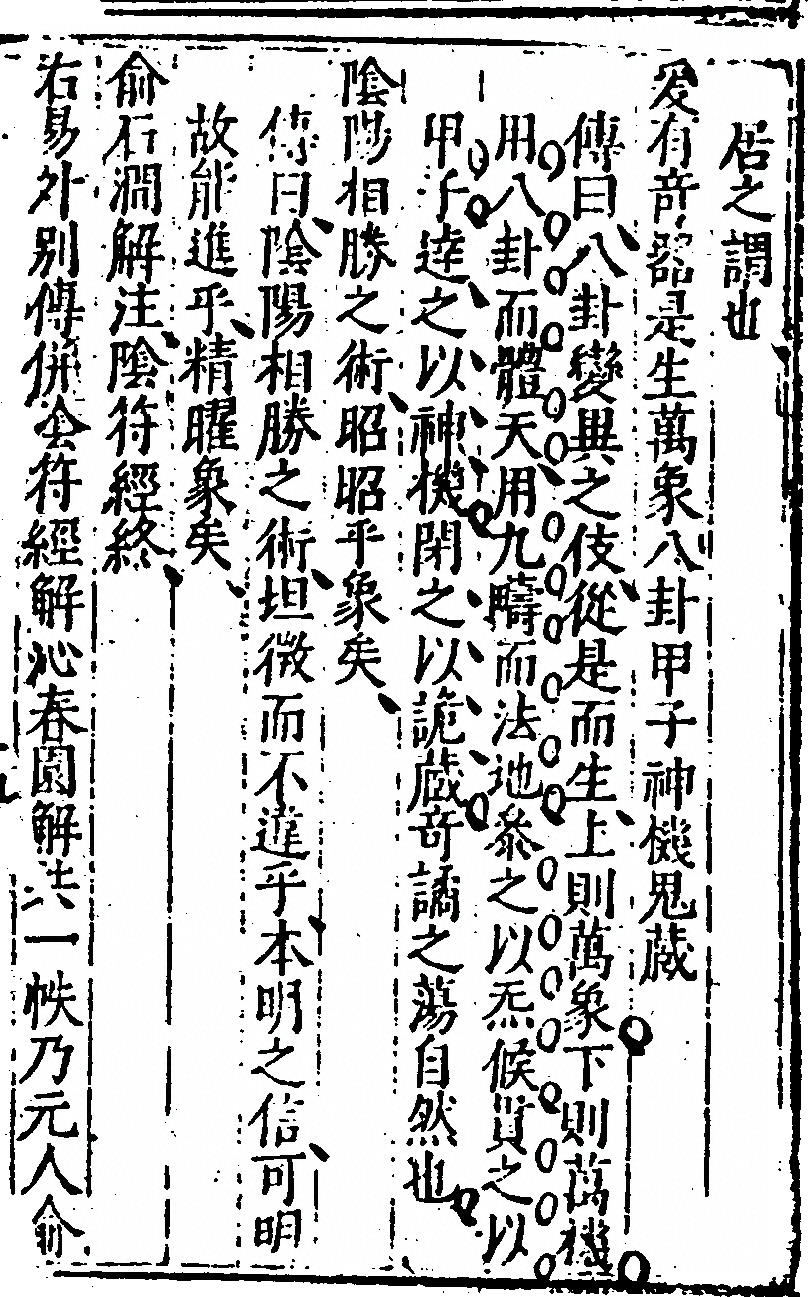 居之謂也
爰有奇器是生萬象八卦甲子神機鬼藏
傳曰八卦變異之伎從是而生上則萬象下則萬機
用八卦而體天用九疇而法地參之以炁候貫之以
甲子達之以神機閉之以詭藏奇譎之蕩自然也
陰陽相勝之術昭昭乎象矣
傳曰陰陽相勝之術坦微而不違乎本明之信可明
故能進乎精曜象矣
俞石澗解注陰符經終
右易外別傳併金符經解沁春園解共一帙乃元人俞